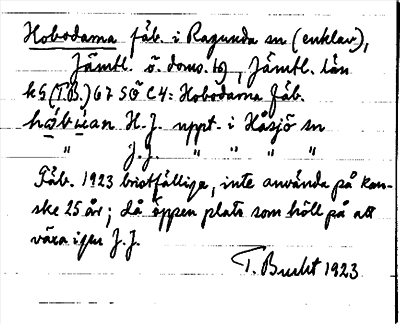 Hobodarna fäb. i Ragunda sn (enklav),
Jämtl. ö. doms. tg, Jämtl. län
kS (T.B.) 67 SÖ C4: Hobodarna fäb.
H.J. uppt. i Håsjö sn
" J.J. " " " "
Fäb. 1923 bristfälliga, inte använda på kan-
ske 25 år; då öppen plats som höll på att
växa igen J.J.
T. Bucht 1923